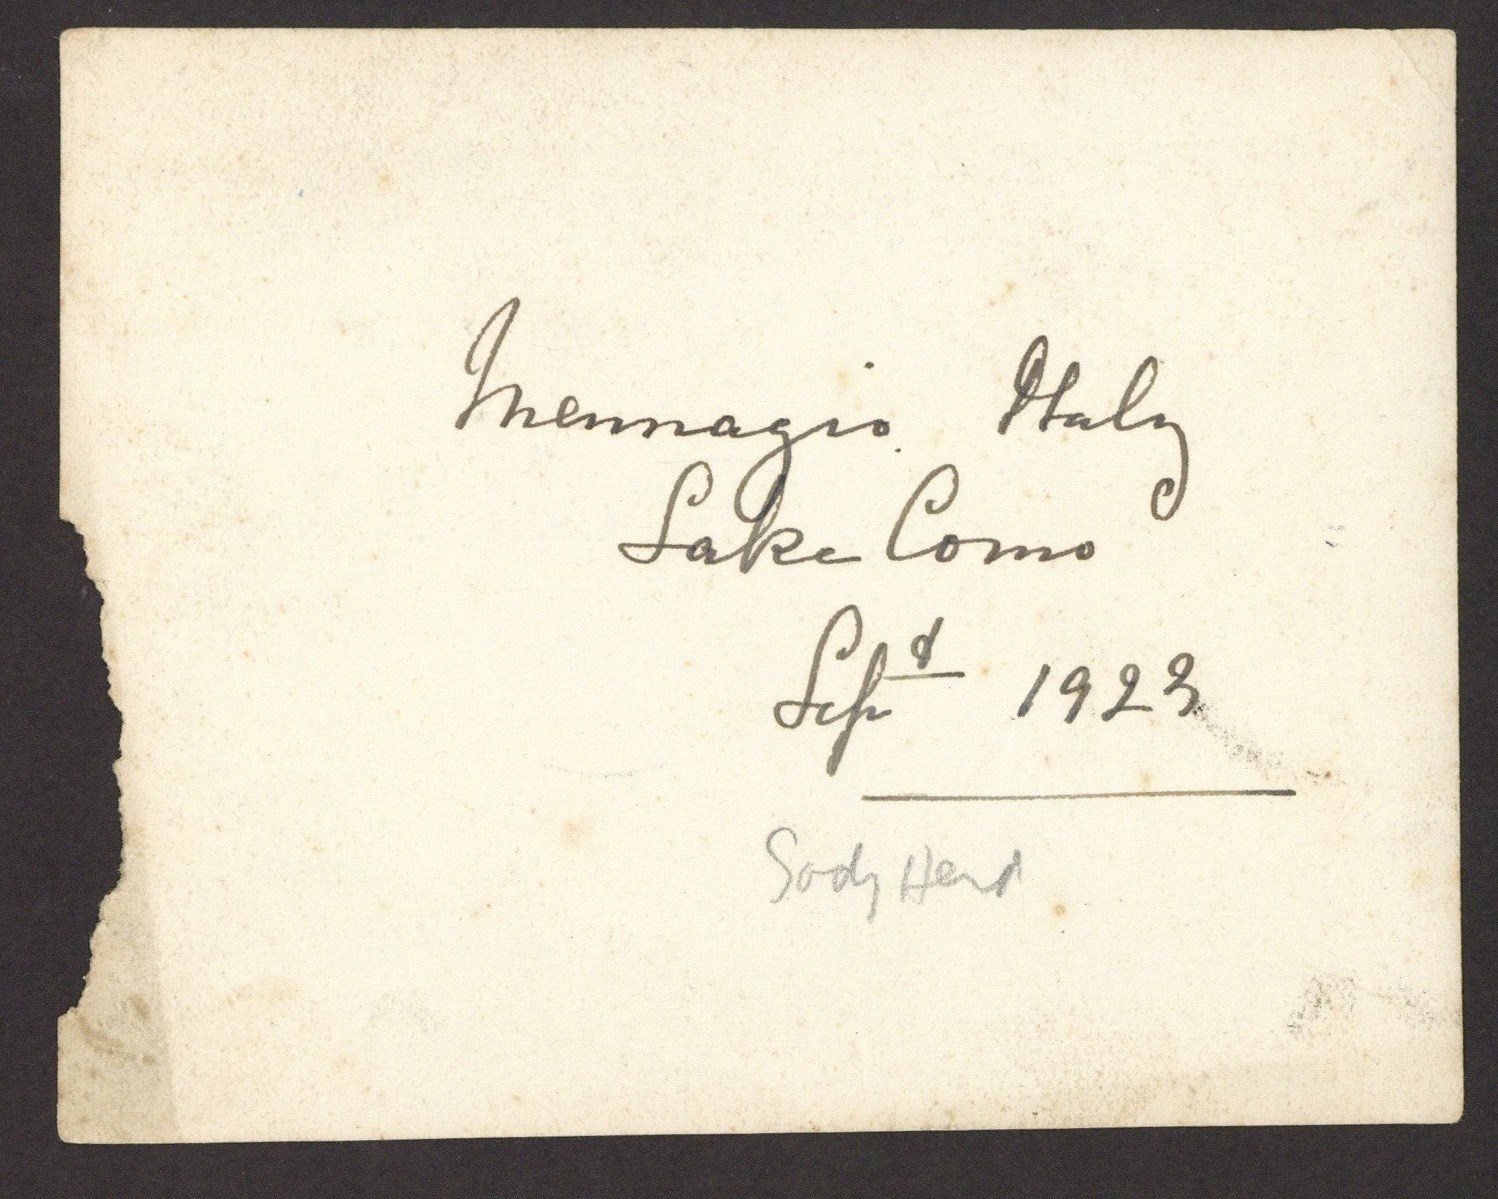 Mennagio Italy
Lake Como
Sepᵗ 1923
Sody Head